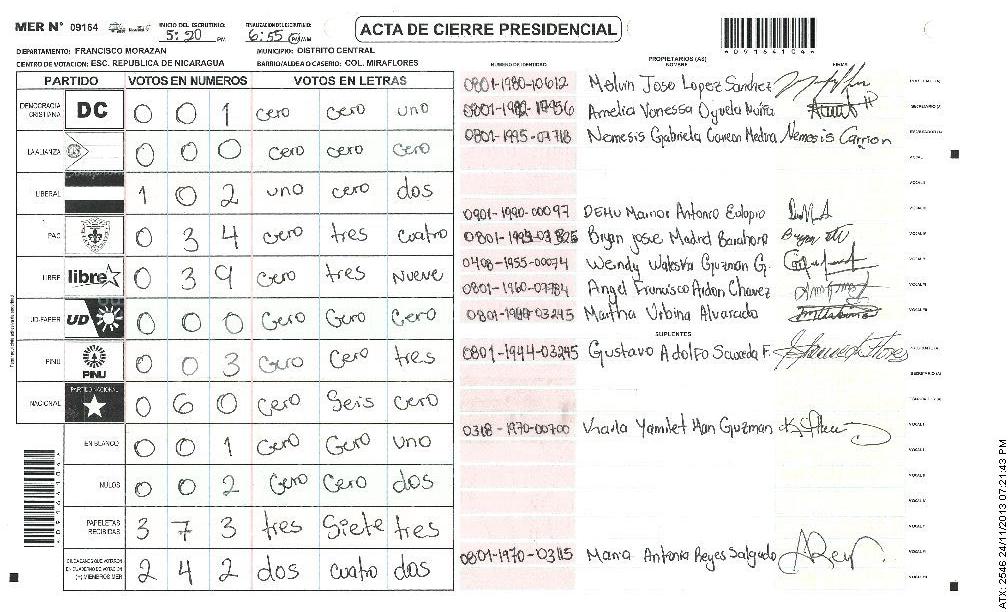 MER N° 09164
INICIO DEL ESCRUTINIO: 5:20 PM
FINALIZACION DEL ESCRUTINIO: 6:55 PM
ACTA DE CIERRE PRESIDENCIAL
DEPARTAMENTO: FRANCISCO MORAZAN MUNICIPIO: DISTRITO CENTRAL
CENTRO DE VOTACION: ESC. REPUBLICA DE NICARAGUA BARRIO/ALDEA O CASERIO: COL. MIRAFLORES
PARTIDO VOTOS EN NUMEROS VOTOS EN LETRAS
DEMOCRACIA CRISTIANA DC 0 0 1 cero cero uno
LA ALIANZA 0 0 0 cero cero cero
LIBERAL 1 0 2 uno cero dos
PAC 0 3 4 cero tres cuatro
LIBRE libre 0 3 9 cero tres Nueve
UD-FAPER UD 0 0 0 Cero Cero Cero
PINU PINU 0 0 3 Cero Cero tres
NACIONAL PARTIDO NACIONAL 0 6 0 Cero Seis cero
EN BLANCO 0 0 1 Cero Cero uno
NULOS 0 0 2 Cero Cero dos
PAPELETAS RECIBIDAS 3 7 3 tres Siete tres
2 4 2 dos cuatro dos
NUMERO DE IDENTIDAD
PROPIETARIOS (AS)
NOMBRE
FIRMA
0801-1980-10612 Melvin Jose Lopez Sanchez
Amelia Vanessa Oyuela
0801-1995-07718 Nemesis Gabriela Medina Nemesis Carrion
0901-1990-00097 Antonio Eulopio
Bryan Josue Madrid Barahona
0408-1955-00074 Wendy Waleska Guzman G.
0801-1960-07784 Angel Francisco Ardon Chavez
Martha Urbina Alvarado
SUPLENTES
0801-1944-03245 Gustavo Adolfo F.
0318-1970-00700 Karla Yamilet Guzman
0801-1970-03115 Maria Antonia Reyes Salgado
ATX: 2546 24/11/2013 07:21:43 PM